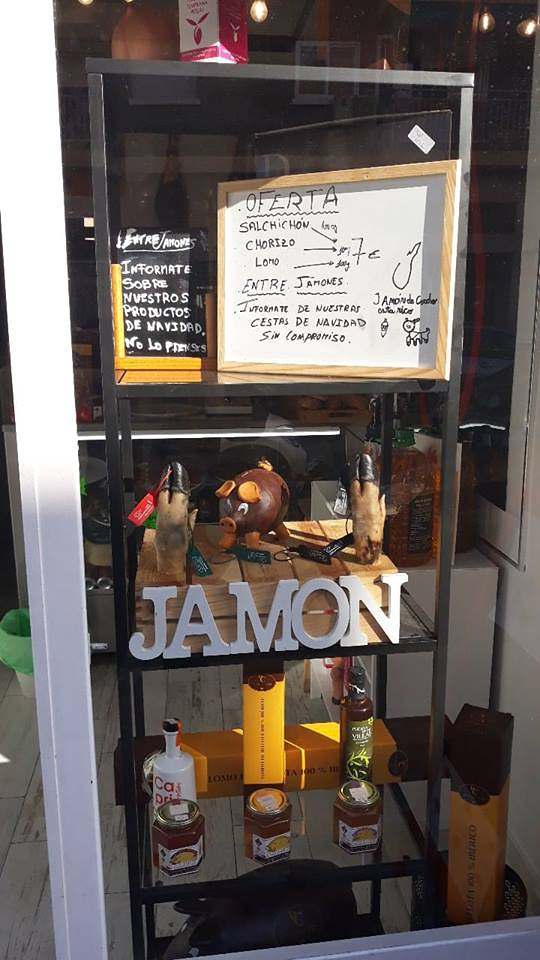 ENTRE JAMONES
INFORMATE
SOBRE
NUESTROS
PRODUCTOS
DE NAVIDAD.
NO LO PIENSES
. OFERTA
SALCHICHÓN 100g
CHORIZO 100g 7€
LOMO 100g
.ENTRE JAMONES.
.INFORMATE DE NUESTRAS
CESTAS DE NAVIDAD
SIN COMPROMISO.
JAMON
LOMO
100 %
Ca
pri
100% IBÉRICO